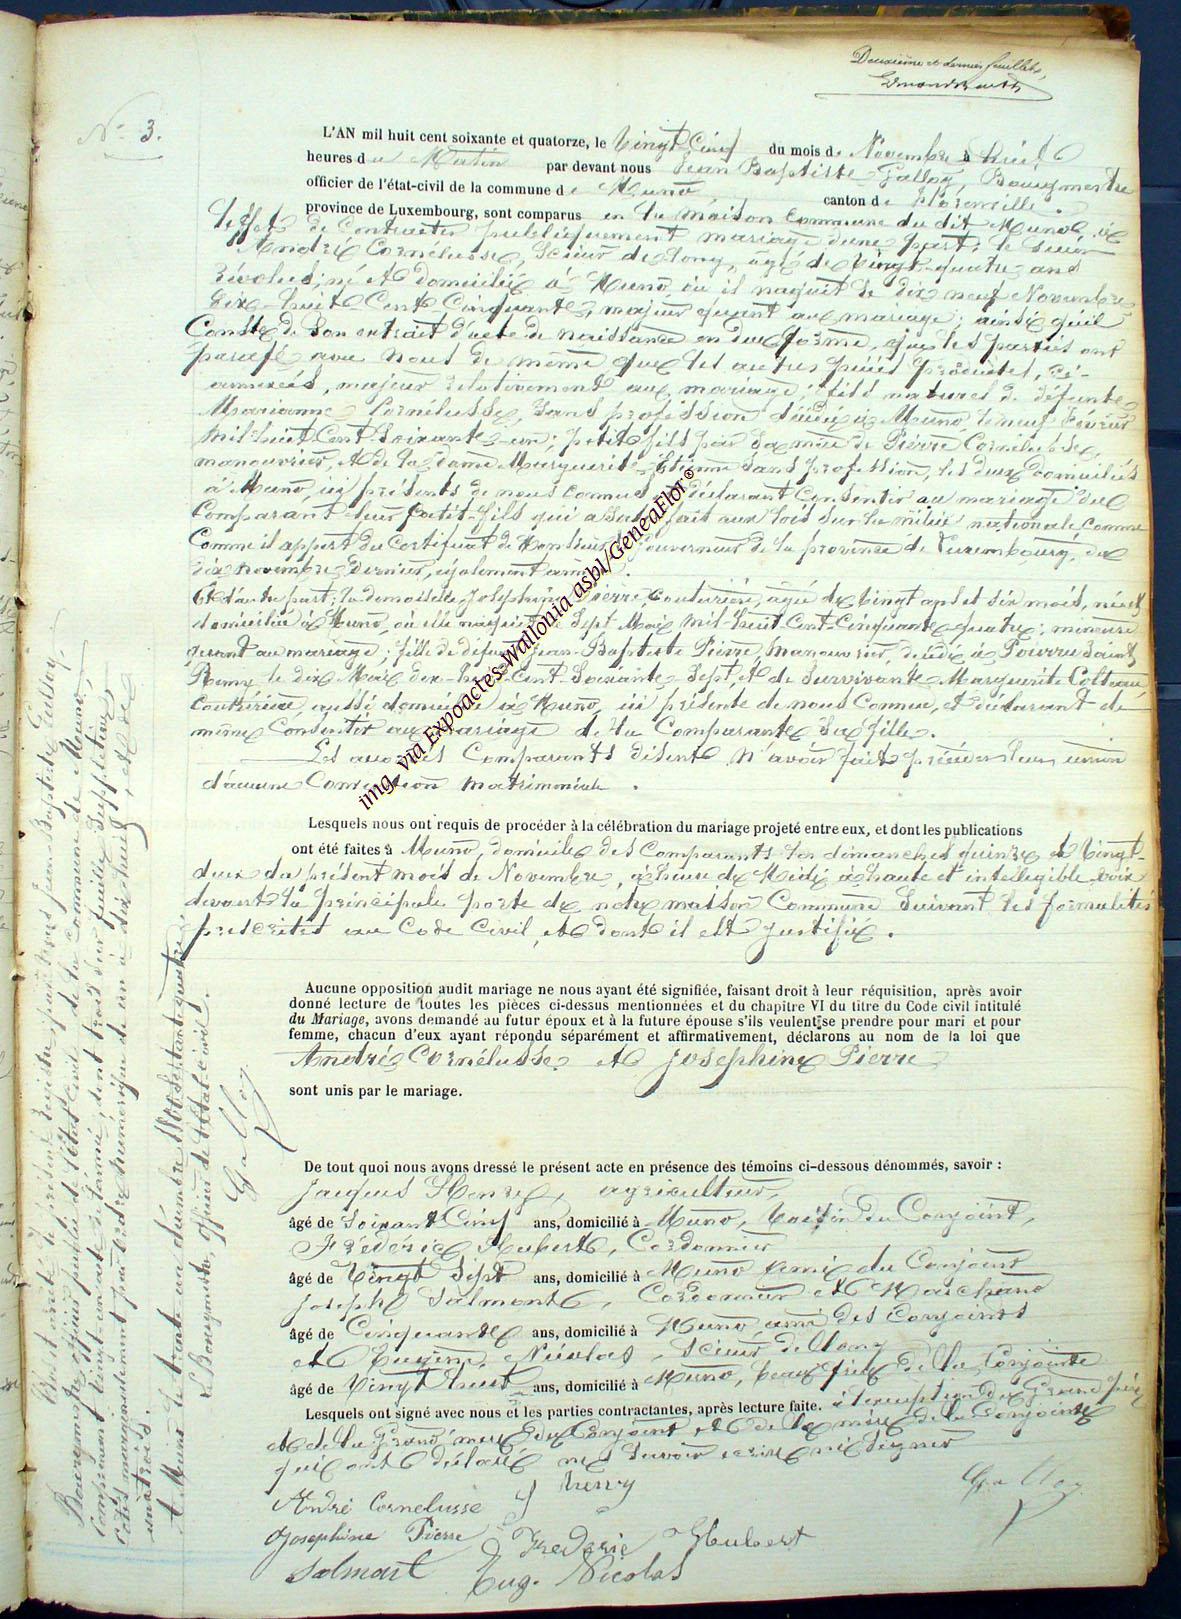 Deuxième et dernier feuillet,
N° 3.
L'AN mil huit cent soixante et quatorze, le Vingt Cinq du mois de Novembre à huit
heures du Matin par devant nous Jean Baptiste Galloy, Bourgmestre
officier de l'état-civil de la commune de Muno, canton de Florenville.
province de Luxembourg, sont comparus en la maison Commune du dit Muno, à
l'effet de Contracter publiquement mariage d'une part; le sieur
André Cornélusse, Scieur de long, âgé de Vingt-quatre ans
révolus, né et domicilié à Muno, où il naquit le dix neuf Novembre
dix-huit-Cent Cinquante, majeur quant au mariage; ainsi qu'il
Conste de son extrait d'acte de naissance en due forme, que les parties ont
parafé avec nous de même que les autres pièces produites, ci-
annexées, majeur relativement au mariage; fils naturel de défunte
Marianne Cornélusse, sans profession décédée à Muno, le neuf Février
mil-huit-Cent-Soixante-un; petit-fils par sa mère de Pierre Cornélusse,
manouvrier, et de la dame Marguerite Etienne sans profession, les deux domiciliés
à Muno, ici présents de nous connus et déclarant Consentir au mariage du
Comparant leur petit-fils qui a satisfait aux lois sur la milice nationale comme
Comme il appert du Certificat de Monsieur le Gouverneur de la province de Luxembourg, du
dix novembre dernier, également annexé.
Et d'autre part; la demoiselle Joséphine Pierre, Couturière, âgée de Vingt ans et six mois, née et
domiciliée à Muno, où elle naquit le Sept Mai mil-huit-Cent-Cinquante-quatre; mineure
quant au mariage; fille de défunt Jean-Baptiste Pierre, manouvrier, décédé à Pourru Saint
Remy le dix Mai dix-huit-Cent-Soixante-Sept, et de Survivante Marguerite Colteaux,
Couturière, aussi domiciliée à Muno, ici présente de nous Connue, et déclarant de
même Consentir au mariage de la Comparante Sa fille.
Les Comparants disent n'avoir fait précéder leur union
d'aucune Convention matrimoniale.
Lesquels nous ont requis de procéder à la célébration du mariage projeté entre eux, et dont les publications
ont été faites à Muno, domicile des Comparants les dimanches quinze et Vingt-
deux du présent mois de Novembre, à l'heure de Midi à haute et intellegible voix
devant la principale porte de notre maison Commune Suivant les formalités
prescrites au Code Civil, et dont il est justifié.
Aucune opposition audit mariage ne nous ayant été signifiée, faisant droit à leur réquisition, après avoir
donné lecture de toutes les pièces ci-dessus mentionnées et du chapitre VI du titre du Code civil intitulé
du Mariage, avons demandé au futur époux et à la future épouse s'ils veulent se prendre pour mari et pour
femme, chacun d'eux ayant répondu séparément et affirmativement, déclarons au nom de la loi que
André Cornélusse et Joséphine Pierre
sont unis par le mariage.
De tout quoi nous avons dressé le présent acte en présence des témoins ci-dessous dénommés, savoir :
Jacques Henry, agriculteur,
âgé de Soixante Cinq ans, domicilié à Muno, Voisin du Conjoint,
Frédéric Hubert, Cordonnier
âgé de Vingt Sept ans, domicilié à Muno ami du Conjoint
Joseph Salmont, Cordonnier et Marchand
âgé de Cinquante ans, domicilié à Muno ami des Conjoints
et Eugène Nicolas, Scieur de long
âgé de Vingt huit ans, domicilié à Muno, beau frère de la Conjointe
Lesquels ont signé avec nous et les parties contractantes, après lecture faite. à l'exception du Grand père
et de la Grand'mère du Conjoint et de la mère de la Conjointe
qui ont déclaré ne Savoir écrire ni Signer
André Cornelusse J Henry Galloy
Josephine Pierre Frederic Hubert
Salmont Eug. Nicolas
le présent registre par Nous Jean Baptiste Galloy,
Bourgmestre, officier public de l'état Civil de la Commune de Muno,
Muno le trente un décembre 
le Bourgmestre, officier de l'état-civil.
Galloy
img. via Expoactes-Wallonia asbl/GeneaFlor©